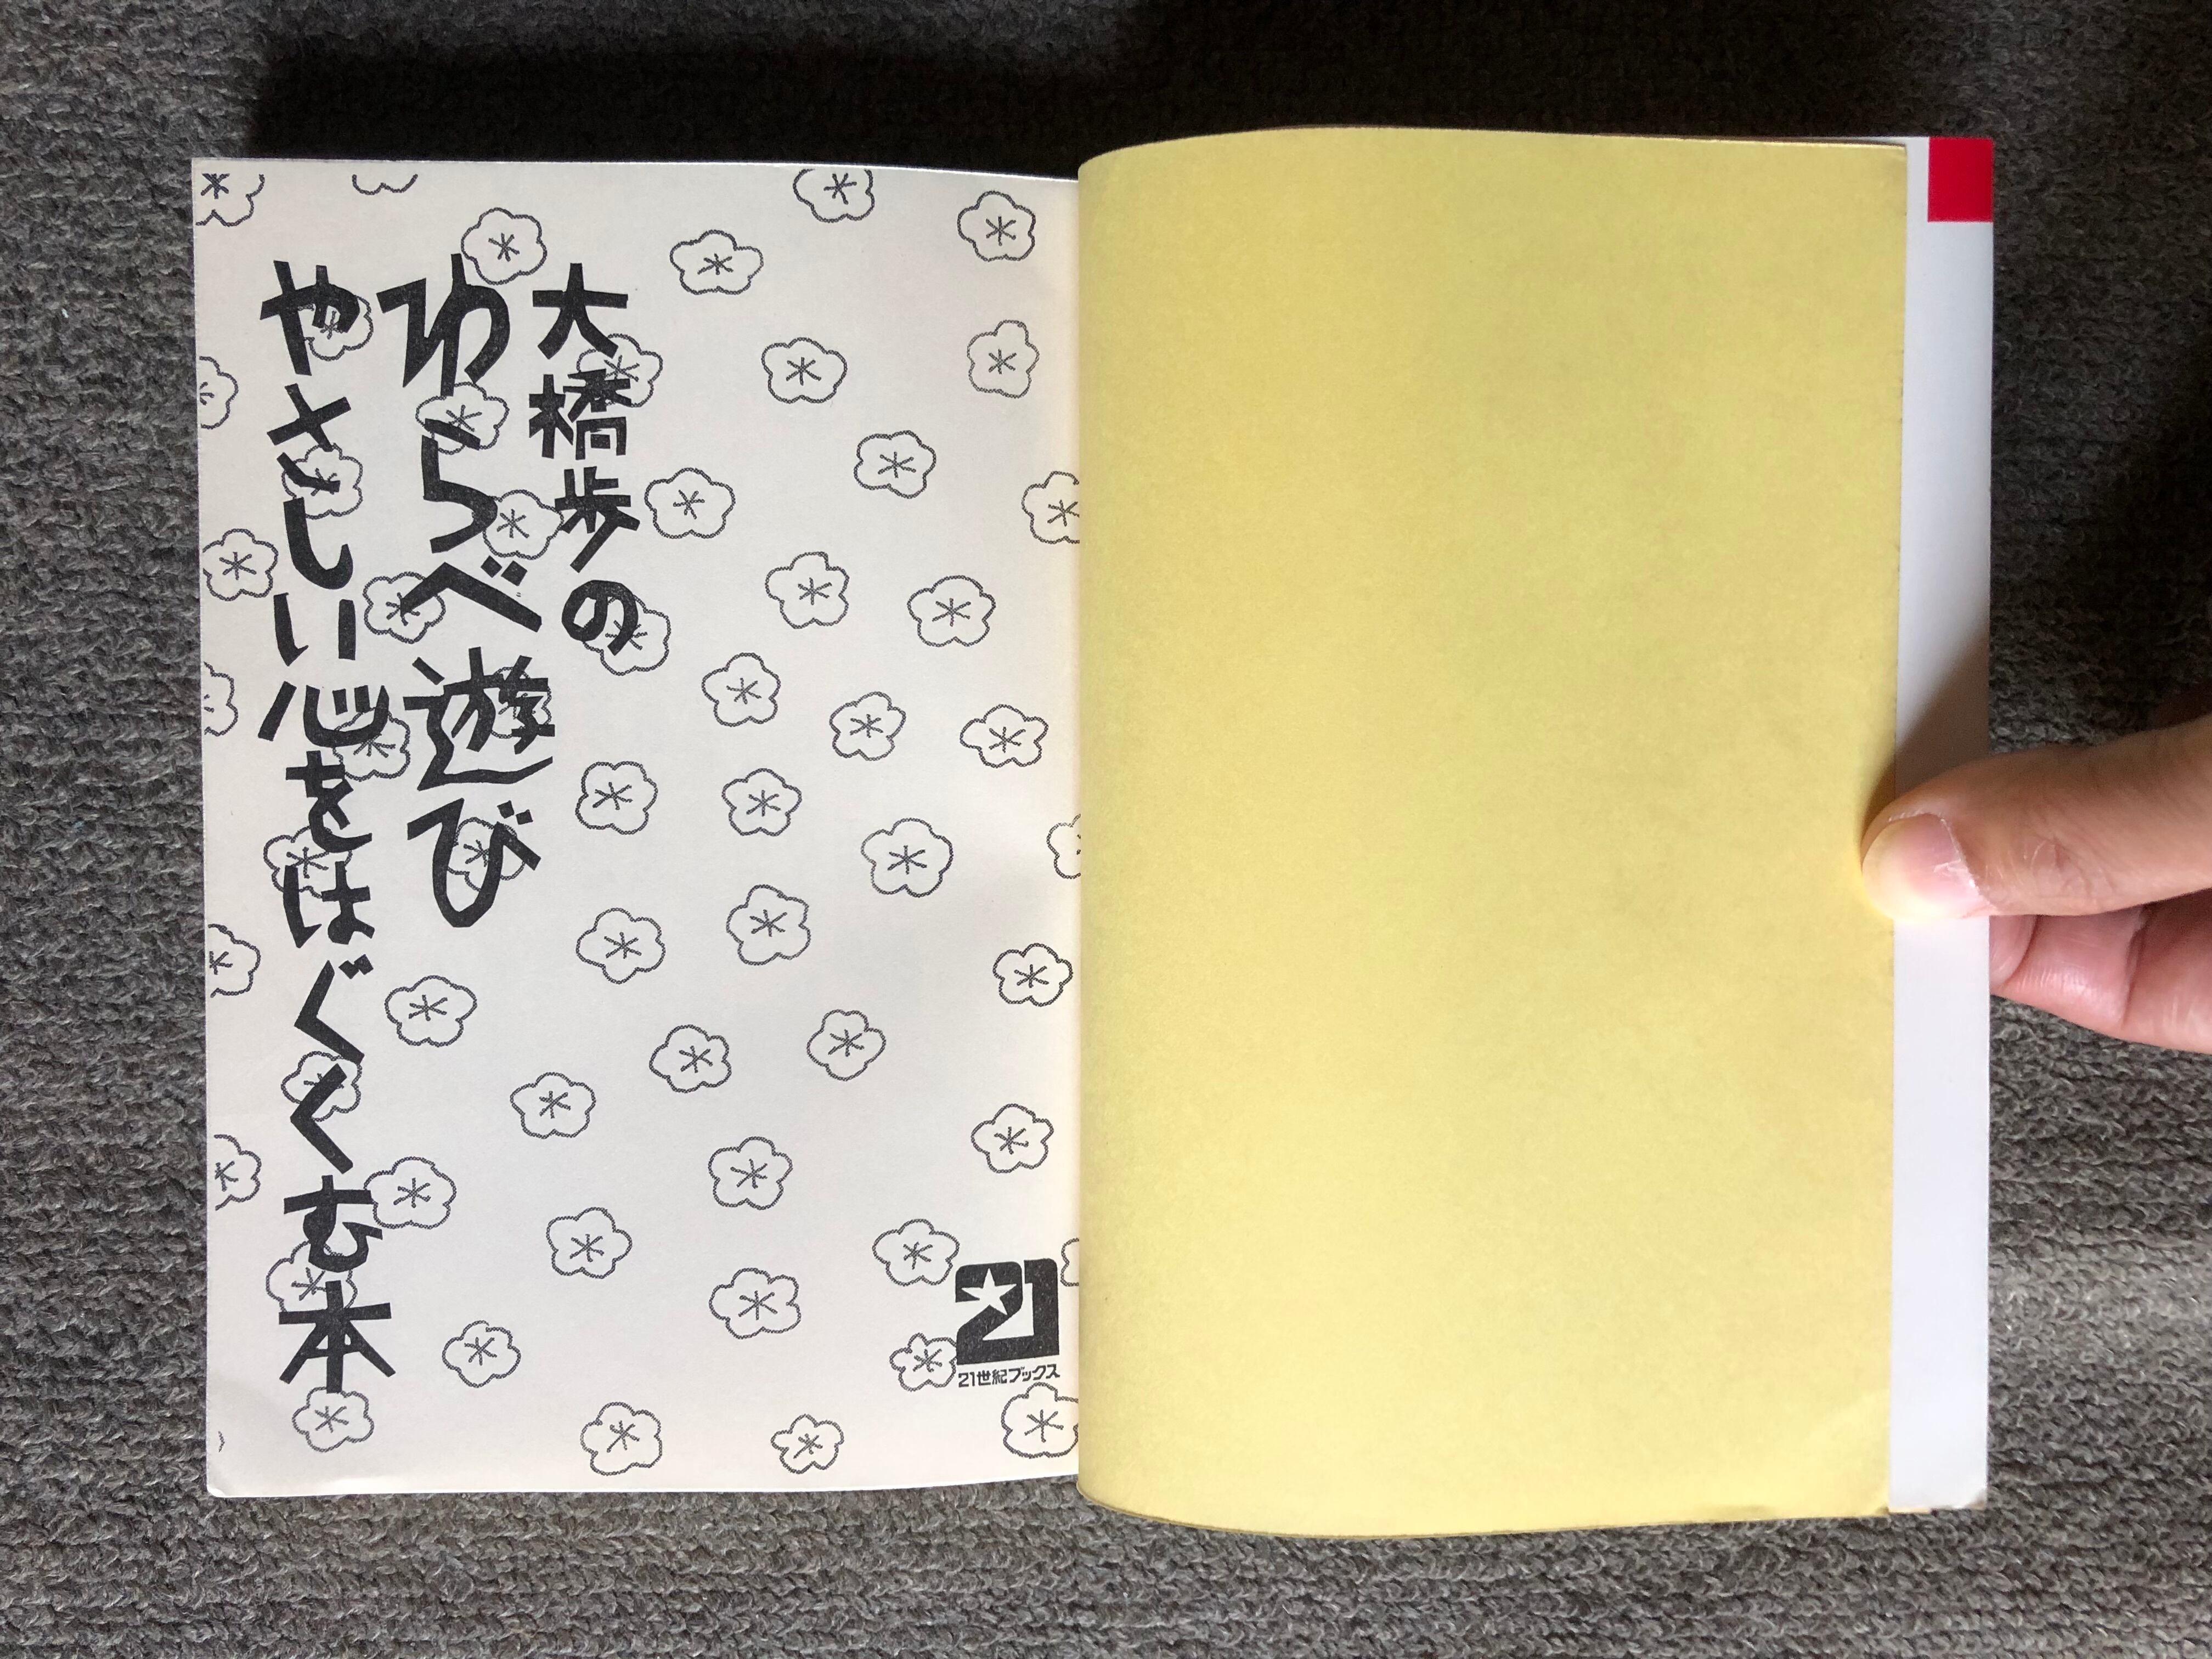 大橋歩の
わらべ遊び
やさしい心をはぐくむ本
21
21世紀ブックス